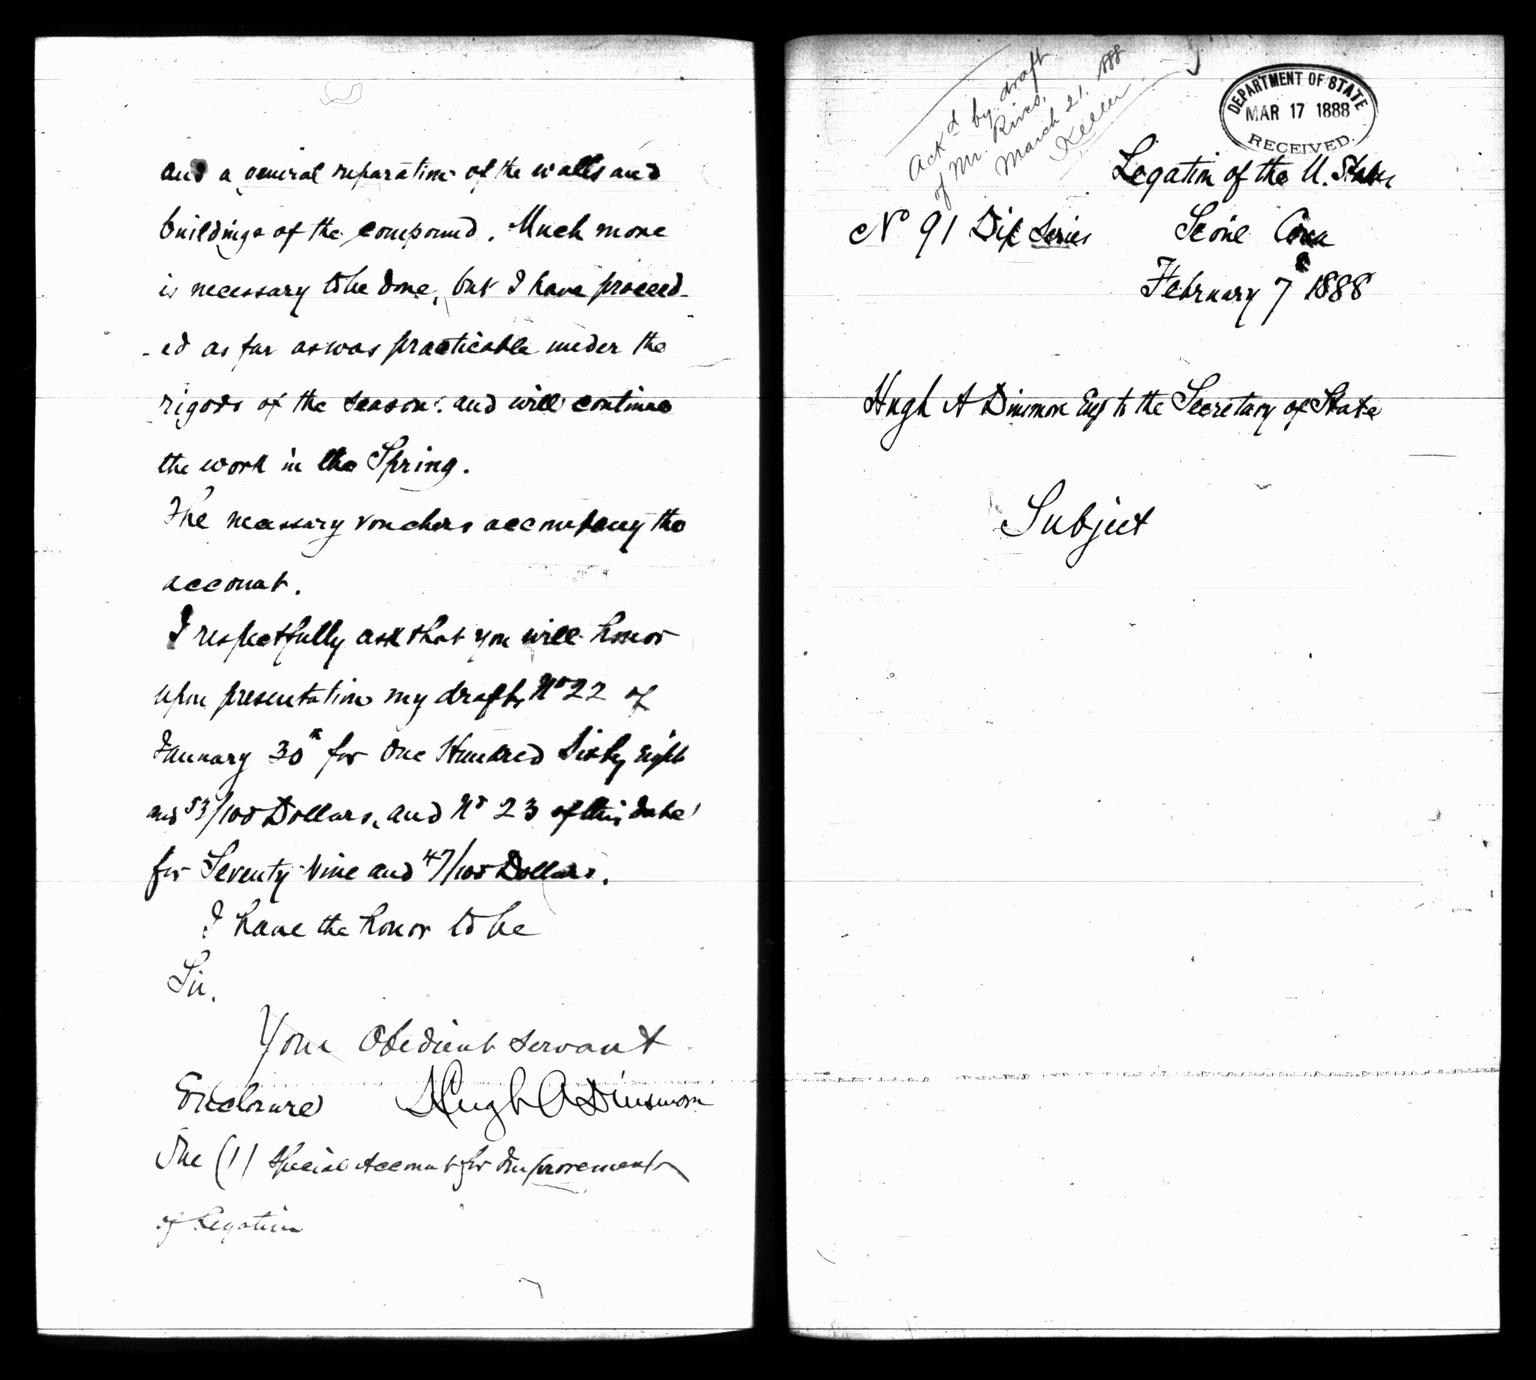 and a general reparation of the walls and
buildings of the compound. Much more
is necessary to be done, but I have proceed-
-ed as far as was practicable under the
rigors of the season. and will continue
the work in the Spring.
The necessary vouchers accompany the
account.
I respectfully ask that you will honor
upon presentation my drafts No 22 of
January 30th for One Hundred Sixty Eight
and 53/100 Dollars, and No 23 of this date
for Seventy Nine and 47/100 Dollars.
I have the honor to be
Sir.
Your Obedient servant
Hugh A Dinsmore
Enclosure
One (1) Special Account for Improvements
of Legation
Ack'd by draft
of Mr. Rives,
March 21, 1888
DEPARTMENT OF STATE
MAR 17 1888
RECEIVED.
Legation of the U. States
No 91 Dip Series
Seoul Corea
February 7 1888
Hugh A Dinsmore Esq to the Secretary of State
Subject